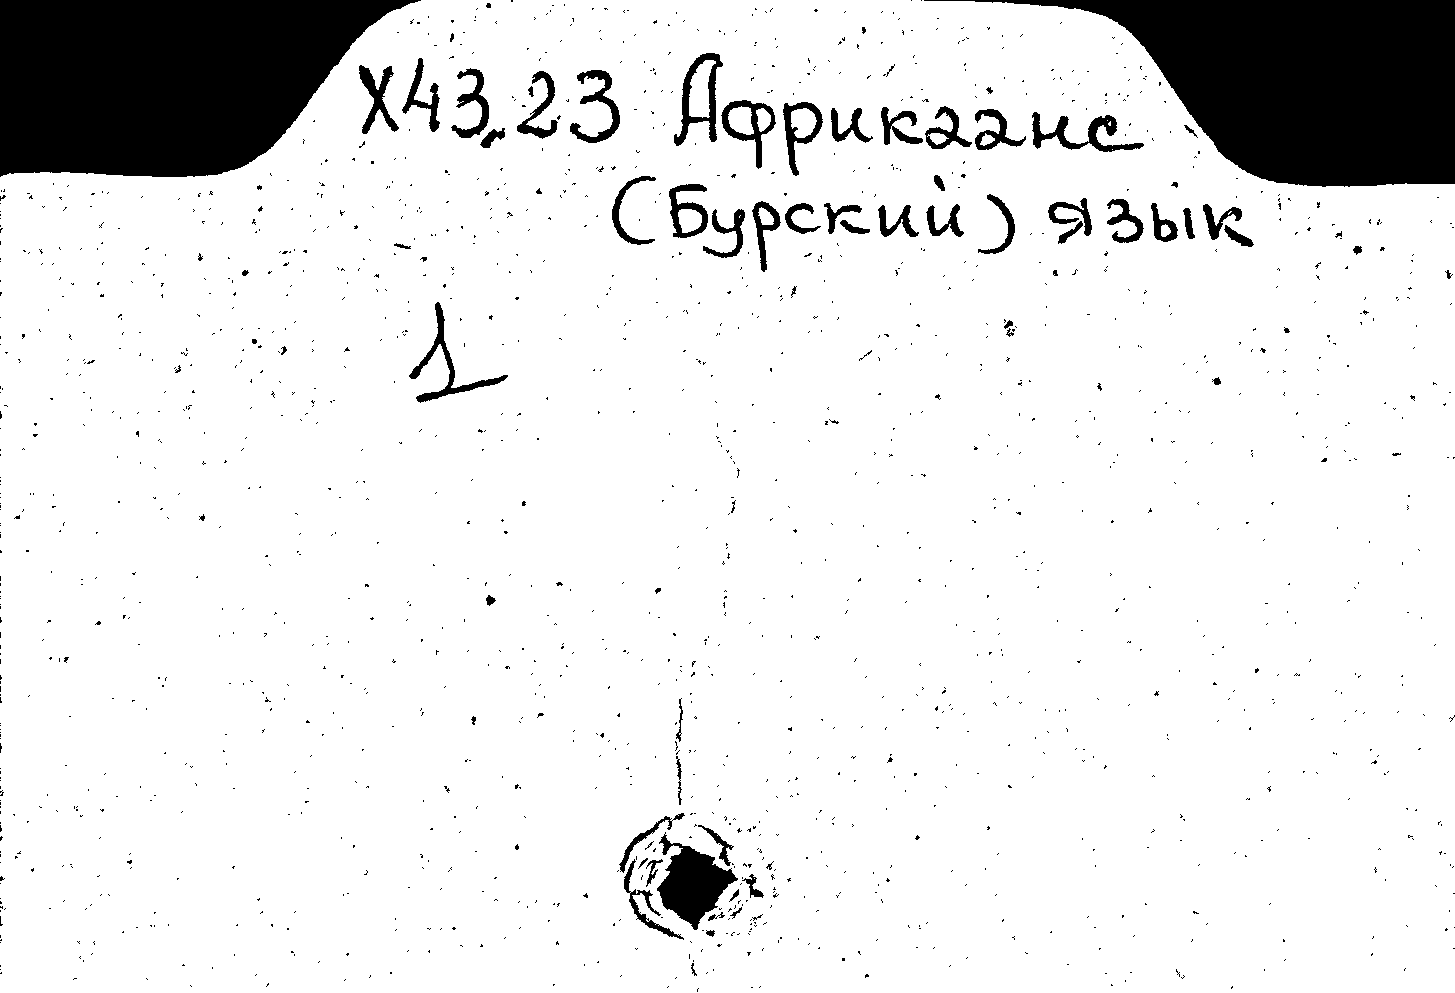 Х43.23 Африкаанс
(Бурский) язык
1